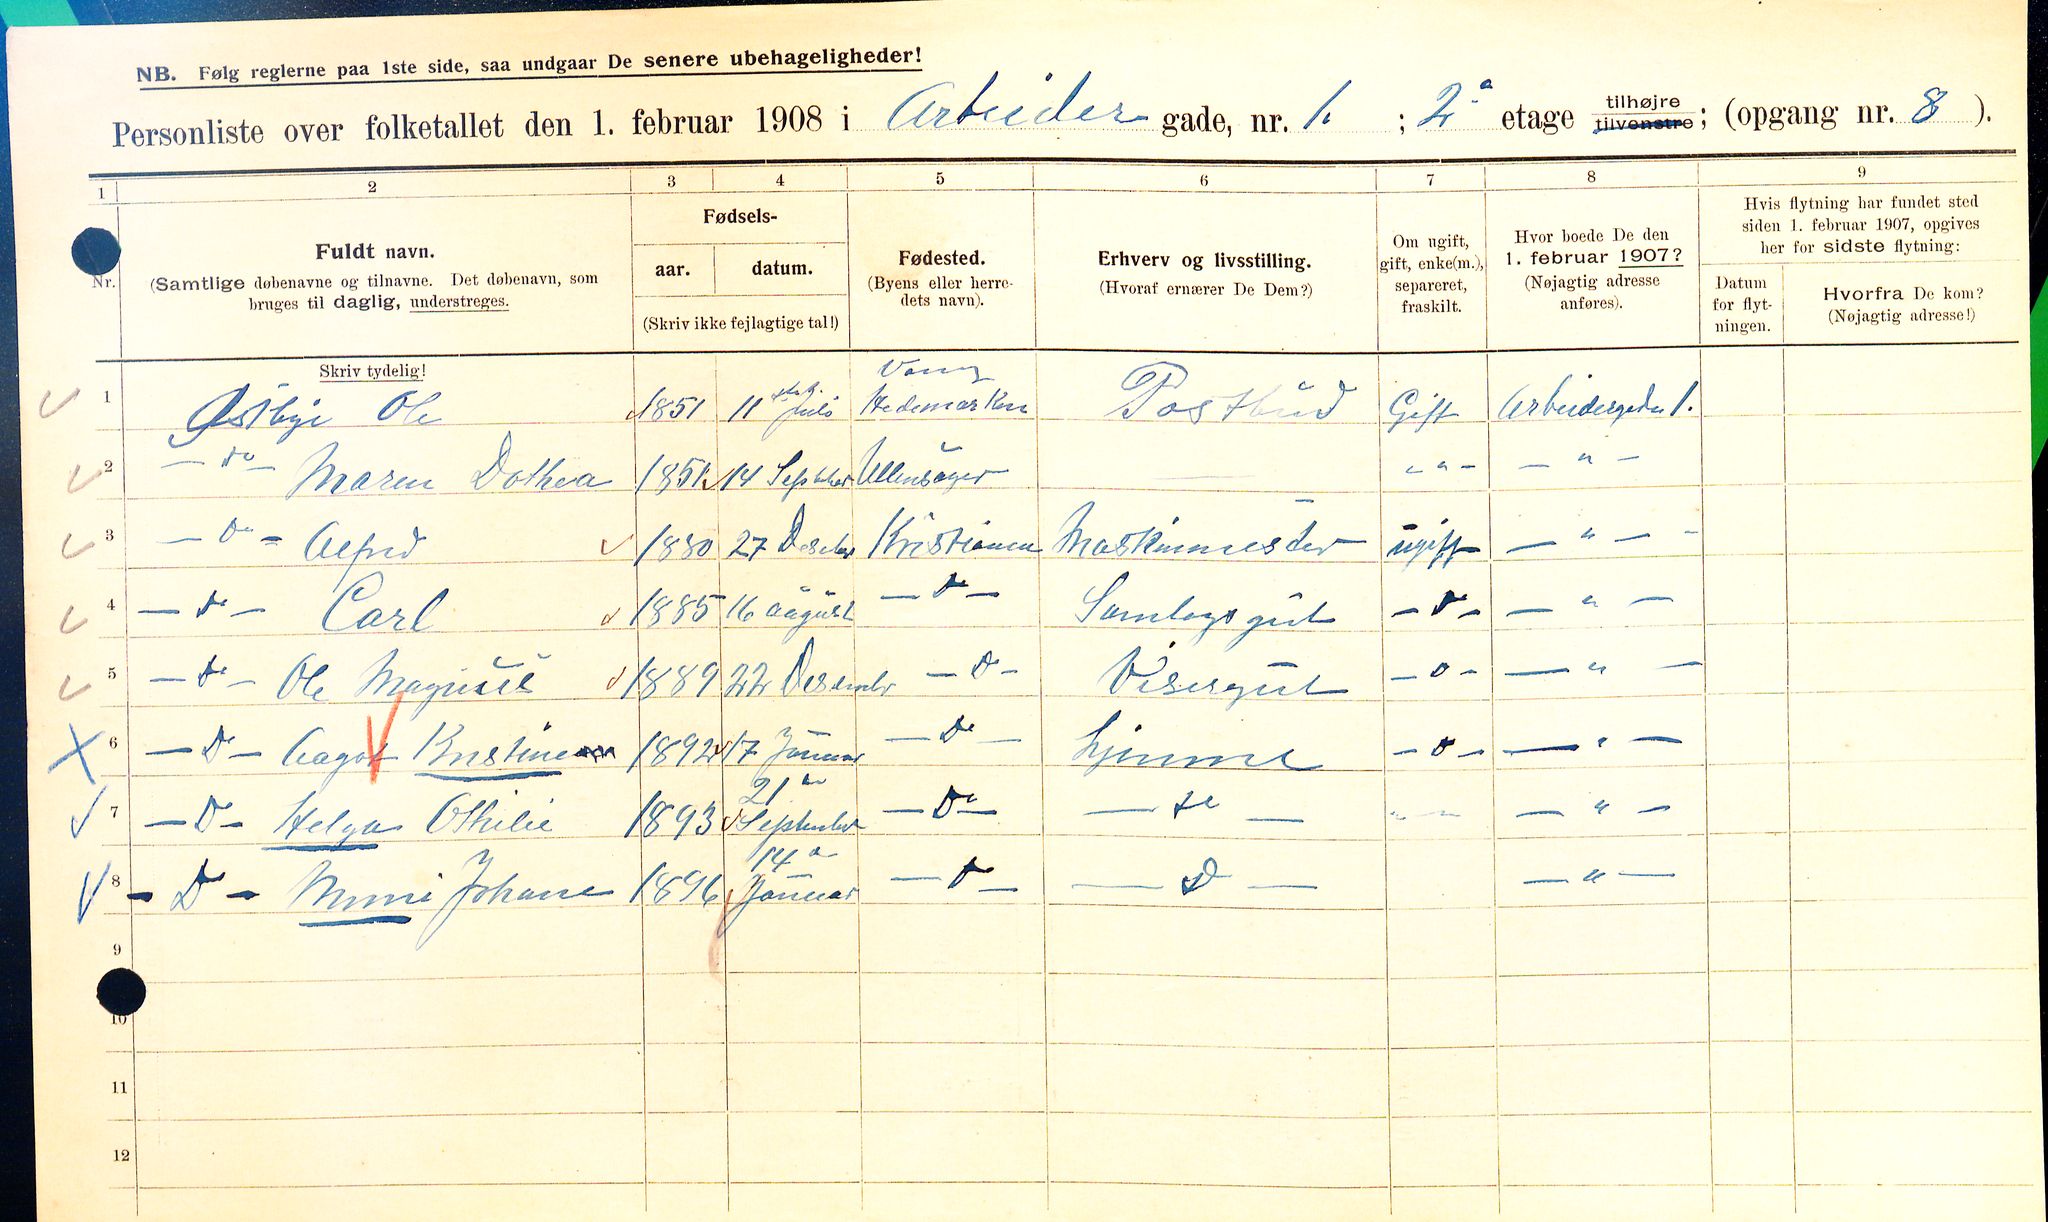 NB. Følg reglerne paa 1ste side, saa undgaar De senere ubehageligheder!
Personliste over folketallet den 1. februar 1908 i Arbeider gade, nr. 1. ; 2a etage tilhøjre tilvenstre ; (opgang nr. 8 ).
1 2 3 4 5 6 7 8 9
Nr. Fuldt navn. (Samtlige døbenavne og tilnavne. Det døbenavn, som bruges til daglig, understreges.
Fødsels- aar. datum. (Skriv ikke fejlagtige tal!)
Fødested. (Byens eller herredets navn).
Erhverv og livsstilling. (Hvoraf ernærer De Dem?)
Om ugift, gift, enke(m.), separeret, fraskilt.
Hvor boede De den 1. februar 1907? (Nøjagtig adresse anføres).
Hvis flytning har fundet sted siden 1. februar 1907, opgives her for sidste flytning:
Datum for flytningen. Hvorfra De kom? (Nøjagtig adresse!)
Skriv tydelig!
1 Østbye Ole 1851 11 Juli Vang Hedemarken Postbud Gift Arbeidergaden 1.
2 — Do — Maren Dothea 1851 14 Septber Ullensager — - " - — " —
3 — Do — Alfred 1880 27 Desebr Kristiania Maskinmester ugift — " — -
4 — Do — Carl 1885 16 august — Do — Samlagsgut — D — — " —
5 — Do — Ole Magnus 1889 22 Desember — Do — Visergut — D — — " —
6 — Do — Aagot Kristine 1892 17 Januar — Do — hjemme — D — — " —
7 — Do — Helga Othilie 1893 21 September — Do — — " — - " - — " —
8 — Do — Mimi Johane 1896 14 Januar — D — — D — — " —
9
10
11
12